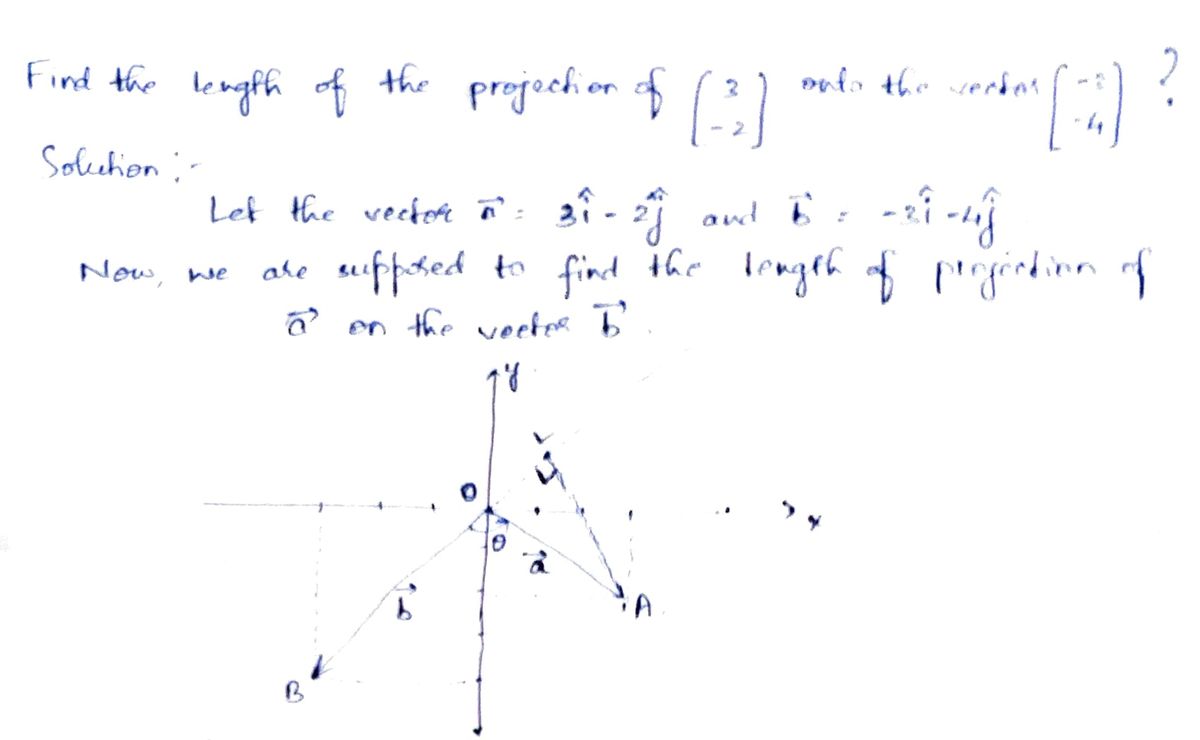 Find the length of the projection of [3 -2] onto the vector [-3 -4] ?
Solution :-
Let the vector a⃗ = 3î - 2ĵ and b⃗ = -3î -4ĵ
Now, we are supposed to find the length of projection of
a⃗ on the vector b⃗.
y
O
x
θ
a⃗
b⃗
A
B